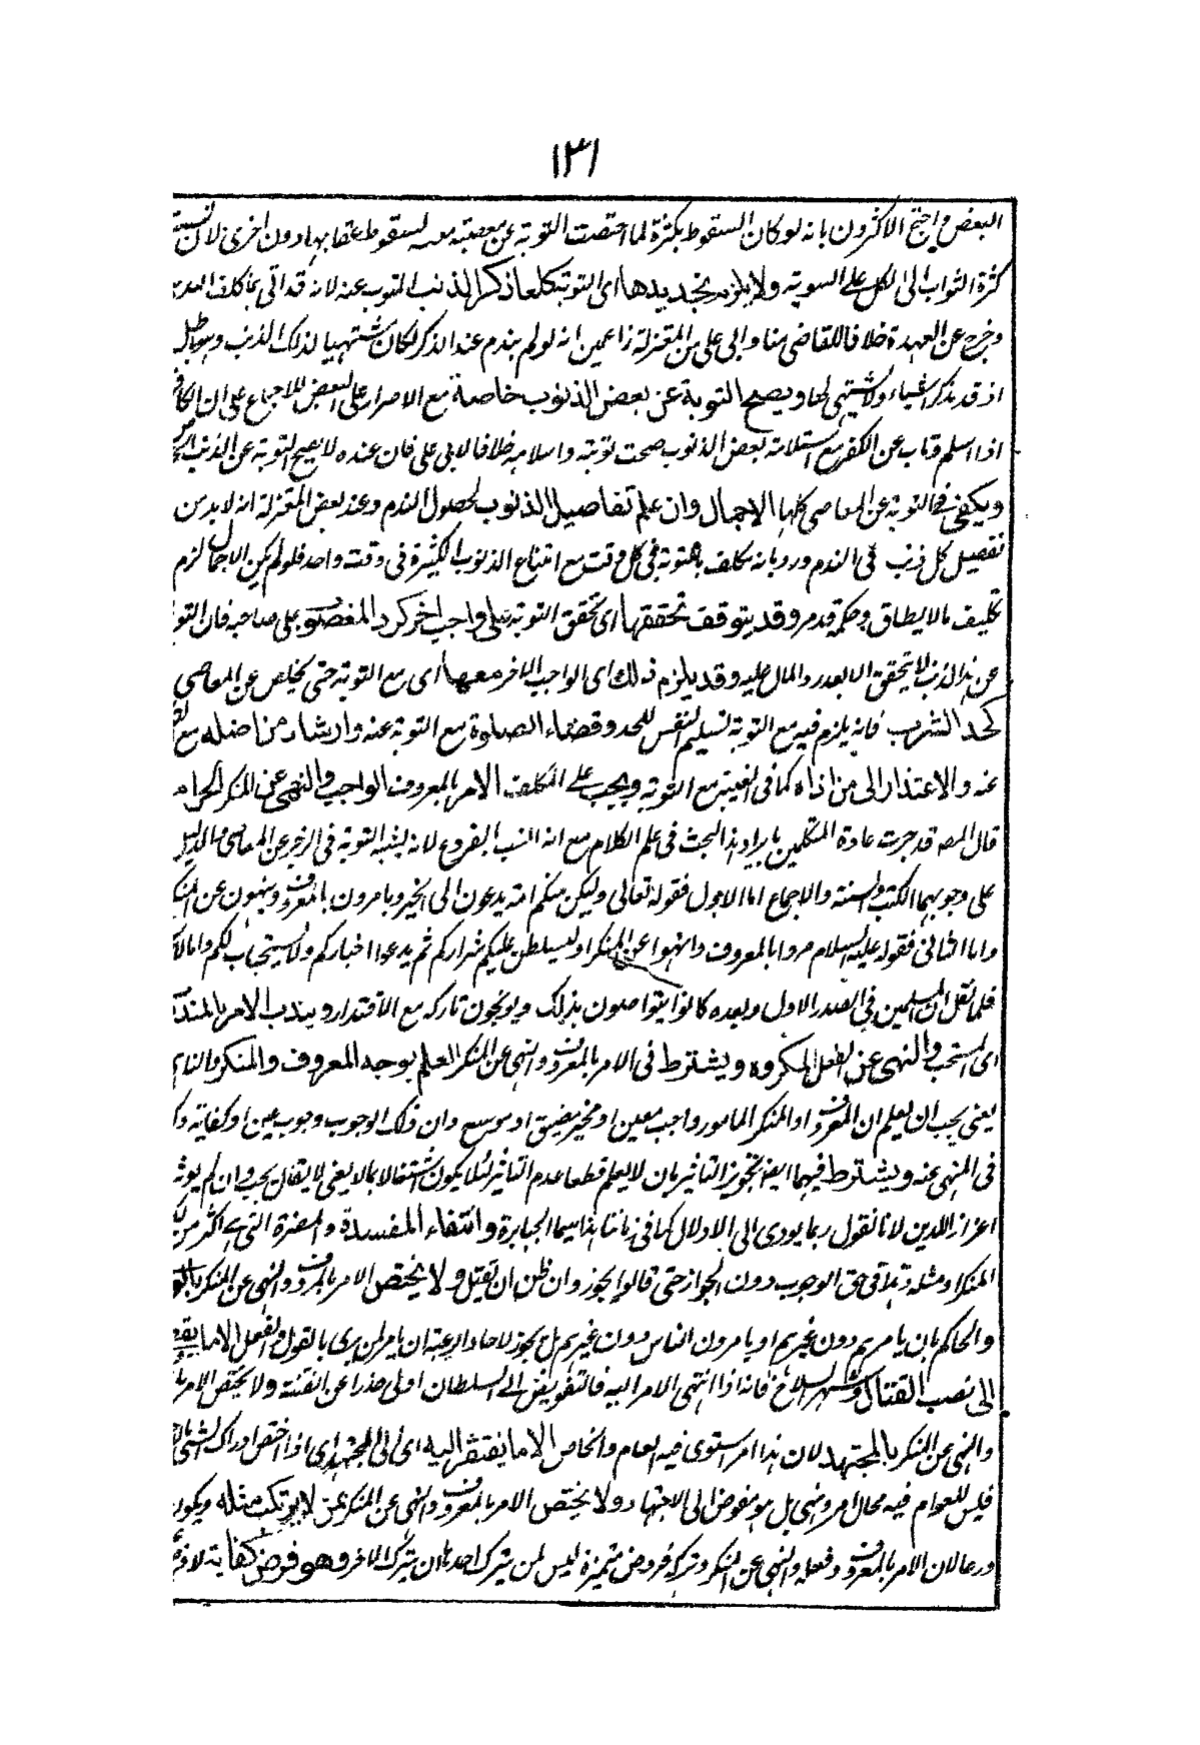 ١٣١
البعض واحتج الاكثرون بانه لو كان السقوط بكثرة لما اختصت التوبة عن معصية معينة لسقوط عقابها دون اخرى لان نسبة
كثرة الثواب الى الكل على السوية ولا يلزم تجديدها اى التوبة كلما ذكر الذنب المتوب عنه لانه قد اتى بما كلف
وخرج عن العهدة خلافا للقاضى منا وابى على من المعتزلة زاعمين انه لو لم يندم عند الذكر لكان مشتهيا لذلك الذنب وهو باطل
اذ قد يذكر اشياء ولا يشتهى لها ويصح التوبة عن بعض الذنوب خاصة مع الاصرار على البعض للاجماع على ان الكافر
اذا اسلم وتاب عن الكفر مع استدامة بعض الذنوب صحت توبته واسلامه خلافا لابى على فان عنده لا يصح التوبة عن الذنب
ويكفى فى التوبة عن المعاصى كلها الاجمال وان علم تفاصيل الذنوب لحصول الندم وعند بعض المعتزلة انه لا بد من
تفصيل كل ذنب فى الندم ورد بانه مكلف بالتوبة فى كل وقت مع امتناع الذنوب الكثيرة فى وقت واحد فلو لم يكن الاجمال لزم
تكليف مالا يطاق وحكمه قد مر وقد يتوقف تحققها اى تحقق التوبة على واجب اخر كرد المغصوب على صاحبه فان التوبة
عن هذا الذنب لا يتحقق الا بعد رد المال عليه وقد يلزم ذلك اى الواجب الاخر معها اى مع التوبة حتى يخلص عن المعاصى
كحد الشرب فانه يلزم فيه مع التوبة تسليم النفس للحد وقضاء الصلوة مع التوبة عنه وارشاد من اضله مع
عنه والاعتذار الى من اذاه كما فى الغيبة مع التوبة ويجب على المكلف الامر بالمعروف الواجب والنهى عن المنكر الحرام
قال المصـ قد جرت عادة المتكلمين بايراد هذا البحث فى علم الكلام مع انه انسب بالفروع لانه يشبه التوبة فى الزجر عن المعاصى والدليل
على وجوبهما الكتب والسنة والاجماع اما الاول فقوله تعالى ولتكن منكم امة يدعون الى الخير ويامرون بالمعروف وينهون عن المنكر
واما الثانى فقوله عليه السلام مروا بالمعروف وانهوا عن المنكر او ليسلطن عليكم شراركم ثم يدعوا اخياركم ولا يستجاب لكم واما
فلما نقل ان المسلمين فى الصدر الاول وبعده كانوا يتواصون بذلك ويوبخون تاركه مع الاقتدار ويندب الامر بالمندوب
اى المستحب والنهى عن الفعل المكروه ويشترط فى الامر بالمعروف والنهى عن المنكر العلم بوجه المعروف والمنكر
يعنى يجب ان يعلم ان المعروف او المنكر المامور واجب معين او مخير مضيق او موسع وان ذلك الوجوب وجوب عين او كفاية
فى المنهى عنه ويشترط فيهما ايضا تجويز التاثير بان لا يعلم قطعا عدم التاثير لئلا يكون اشتغالا بما لا يغنى لا يقال يجب وان لم يوثر
اعزازا للدين لانا نقول ربما يودى الى الاذلال كما فى زماننا هذا سيما الجبابرة وانتفاء المفسدة والمضرة التى هى اكثر من
المنكر او مثله وهذا فى حق الوجوب دون الجواز حتى قالوا يجوز وان ظن ان يقتل ولا يختص الامر بالمعروف والنهى عن المنكر
والحاكم بان يامرهم دون غيرهم او يامرون الناس دون غيرهم بل يجوز لاحاد الرعية ان يامر لمن يرى بالقول والفعل الا ما يقضى
الى نصب القتال وشهر السلاح فانه اذا انتهى الامر اليه فالتفويض الى السلطان اولى حذرا عن الفتنة ولا يختص الامر
والنهى عن المنكر بالمجتهد لان هذا امر استوى فيه العام والخاص الا ما يفتقر اليه اى الى المجتهد اى اذا اختص ادراك الشئ
فليس للعوام فيه محال امر ونهى بل هو مفوض الى الاجتهاد ولا يختص الامر بالمعروف والنهى عن المنكر بمن لا يرتكب مثله ويكون
ورعا لان الامر بالمعروف وفعله والنهى عن المنكر وتركه فروض متميزة ليس لمن يترك احدها ان يترك الاخر وهو فرض كفاية